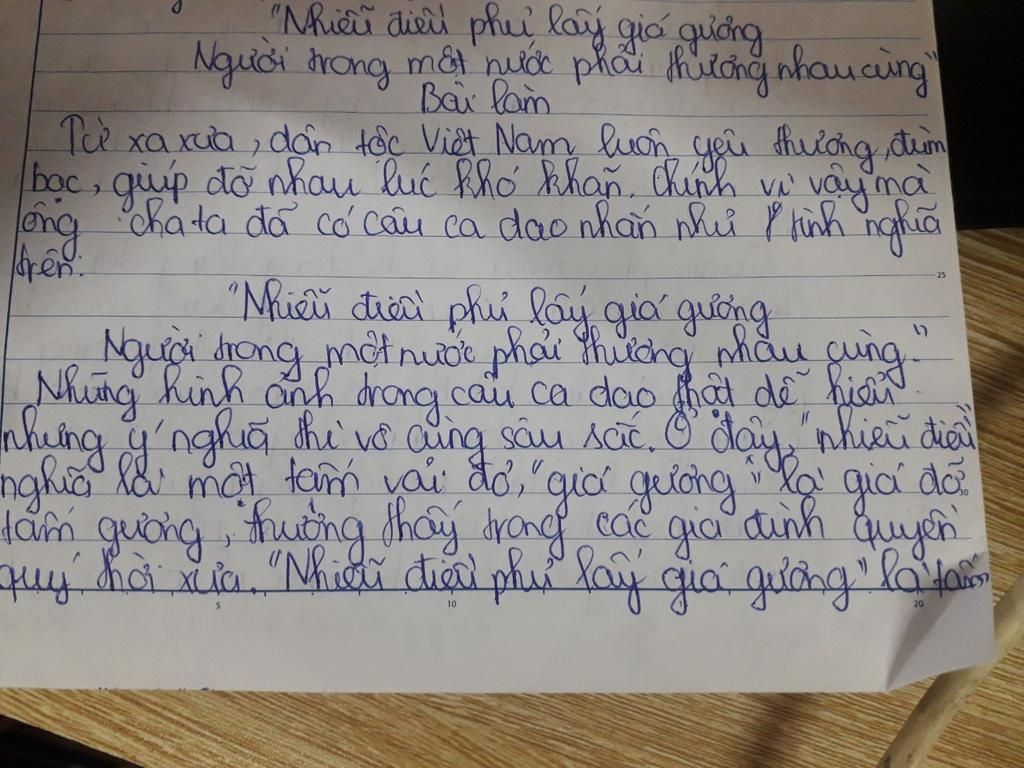 "Nhiễu điều phủ lấy giá gương
Người trong một nước phải thương nhau cùng"
Bài làm
Từ xa xưa, dân tộc Việt Nam luôn yêu thương, đùm
bọc, giúp đỡ nhau lúc khó khăn. Chính vì vậy mà
ông cha ta đã có câu ca dao nhắn nhủ tình nghĩa
trên:
25
"Nhiễu điều phủ lấy giá gương
Người trong một nước phải thương nhau cùng."
Những hình ảnh trong câu ca dao thật dễ hiểu
nhưng ý nghĩa thì vô cùng sâu sắc. Ở đây, "nhiễu điều
nghĩa là một tấm vải đỏ, "giá gương" là giá đỡ
tấm gương, thường thấy trong các gia đình quyền
quý thời xưa. "Nhiễu điều phủ lấy giá gương" là tấm
5 10 20